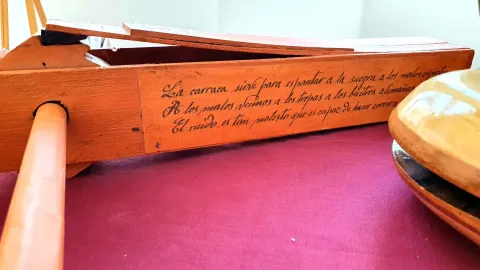 La carraca sirve para espantar a la suegra a los malos espíri
A los malos vecinos a los trepas a los buitres alemanes
El ruido es tan molesto que es capaz de hacer correr a